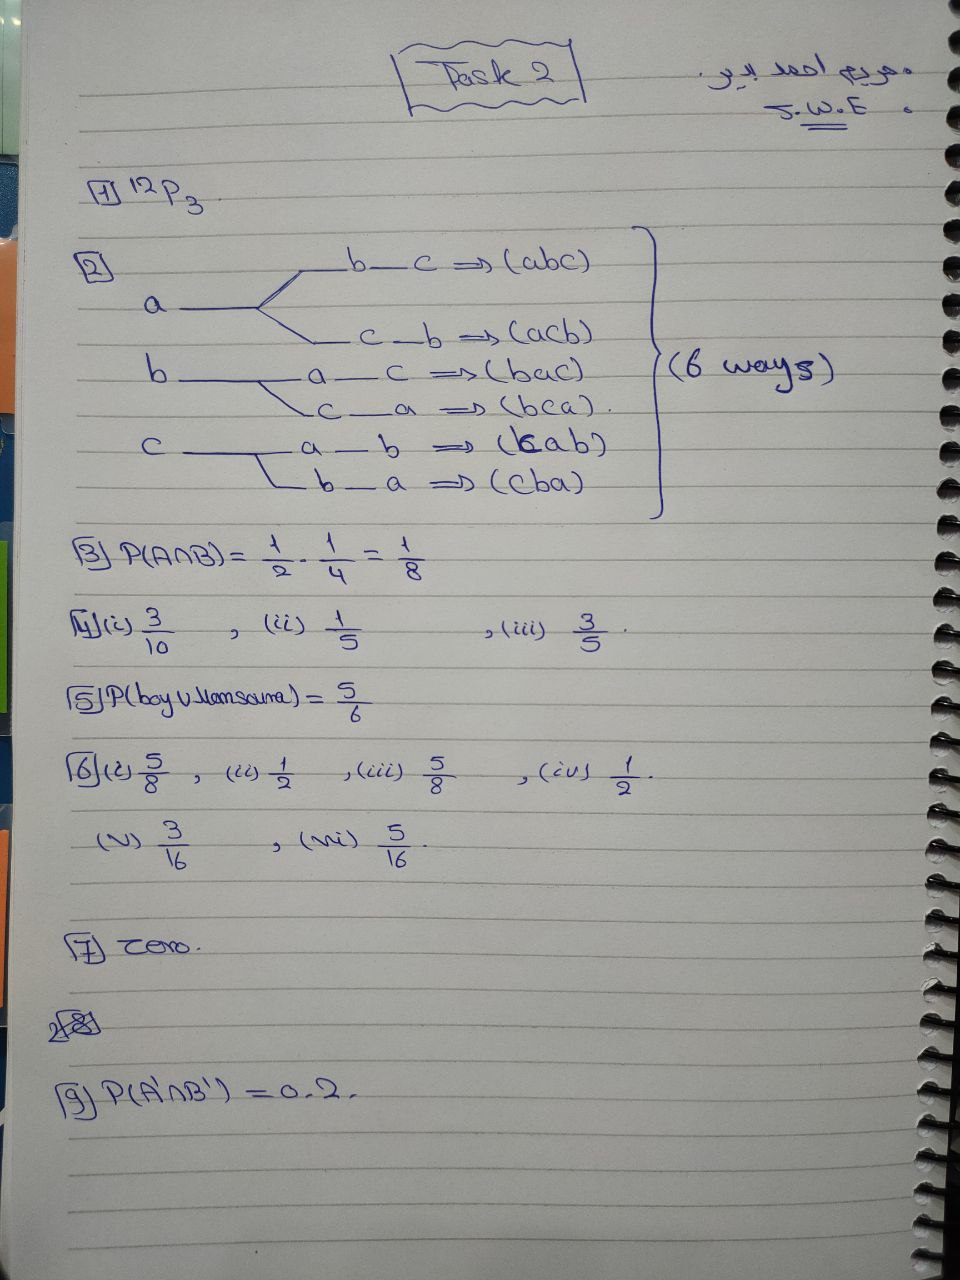 Task 2
مريم احمد
S.W.E
1 12P3
2
a b c ⇒ (abc)
c b ⇒ (acb)
b a c ⇒ (bac)
c a ⇒ (bca).
c a b ⇒ (cab)
b a ⇒ (cba)
(6 ways)
3 P(A∩B) = 1/2 . 1/4 = 1/8
4 (i) 3/10 , (ii) 1/5 , (iii) 3/5 .
5 P(boy ∪ Mansoura) = 5/6
6 (i) 5/8 , (ii) 1/2 , (iii) 5/8 , (iv) 1/2 .
(v) 3/16 , (vi) 5/16 .
7 zero.
9 P(A'∩B') = 0.2.